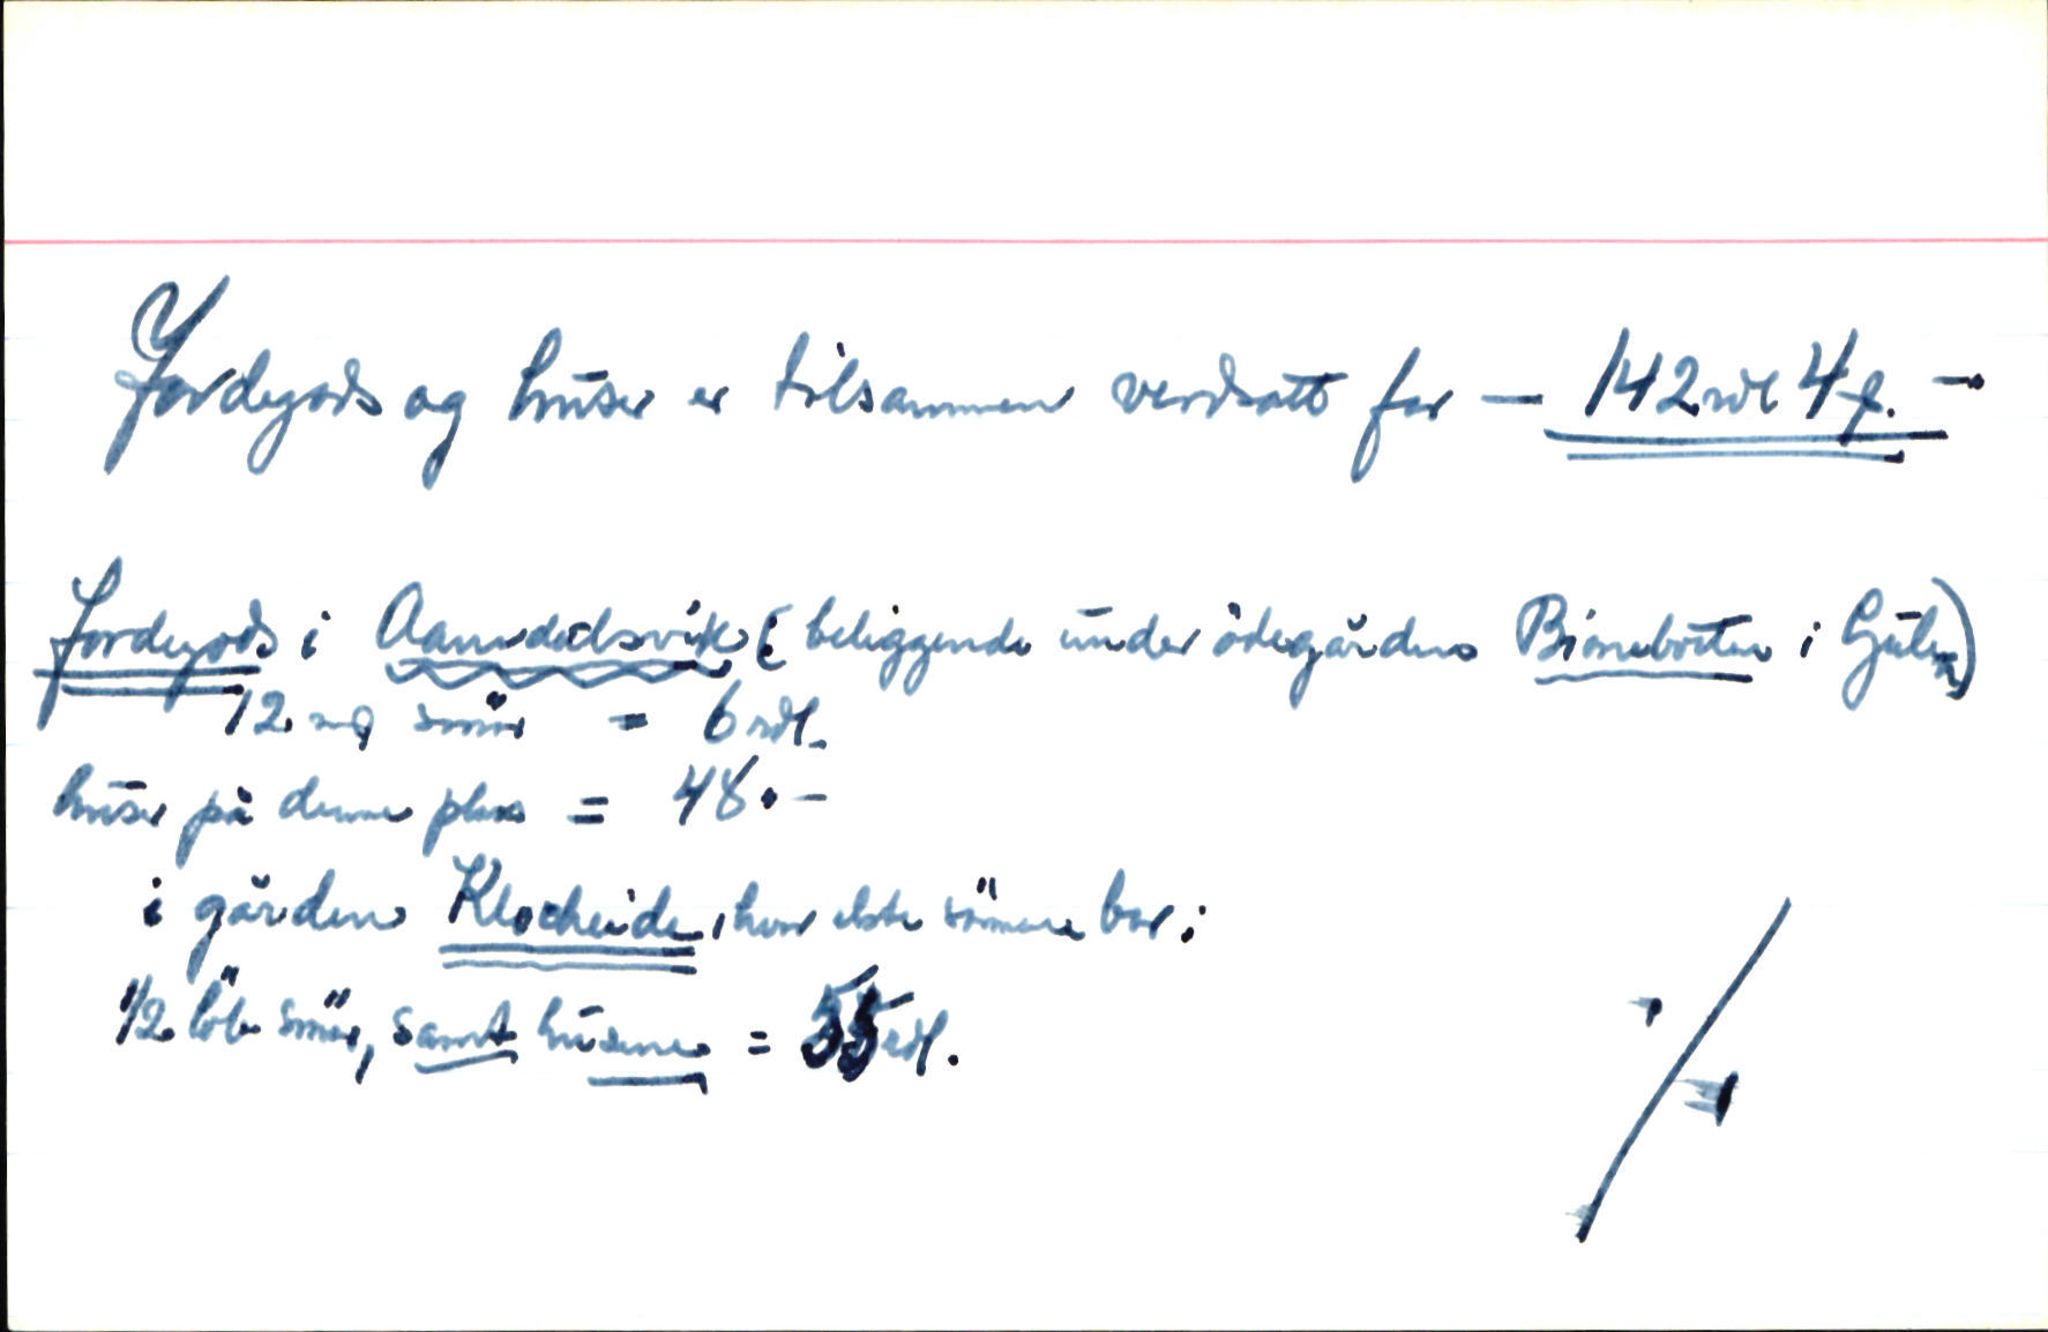 Jordegods og huser er tilsammen verdsatt for — 142 rdl 4 β. —
Jordegods i Aamdadsvik (beliggende under ödegården Bionebotten i Gulen)
12 mg smör = 6 rdl.
huser på denne plass = 48.-
i gården Klocheide, hvor elste sönnen bor;
1/2 löb smör, samt husene = 55 rdl.